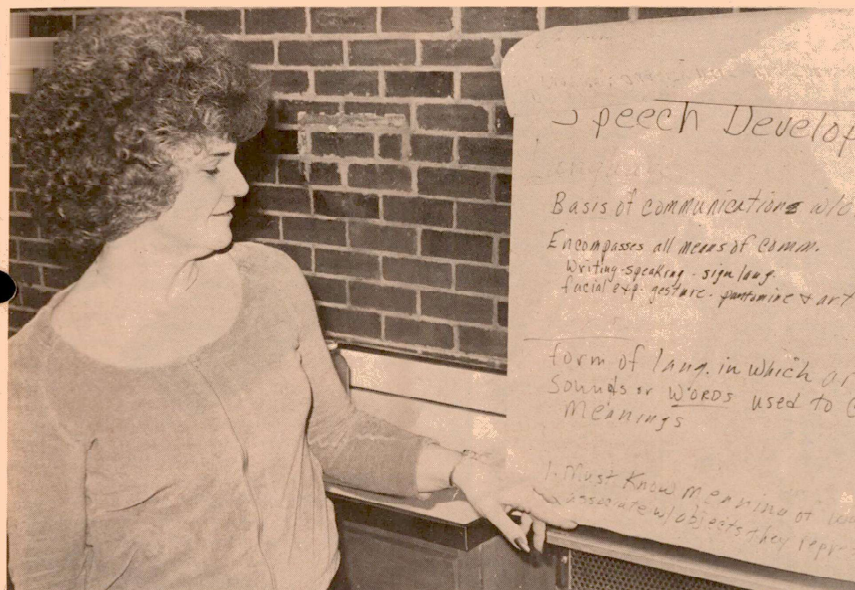 Speech Develop
Basis of communications w/o
Encompasses all means of comm.
Writing - speaking - sign lang.
facial exp. gesture - pantomine & art
form of lang. in which ar
Sounds or WORDS used to C
Meanings
1. Must Know meaning of
associate w/ objects they repr